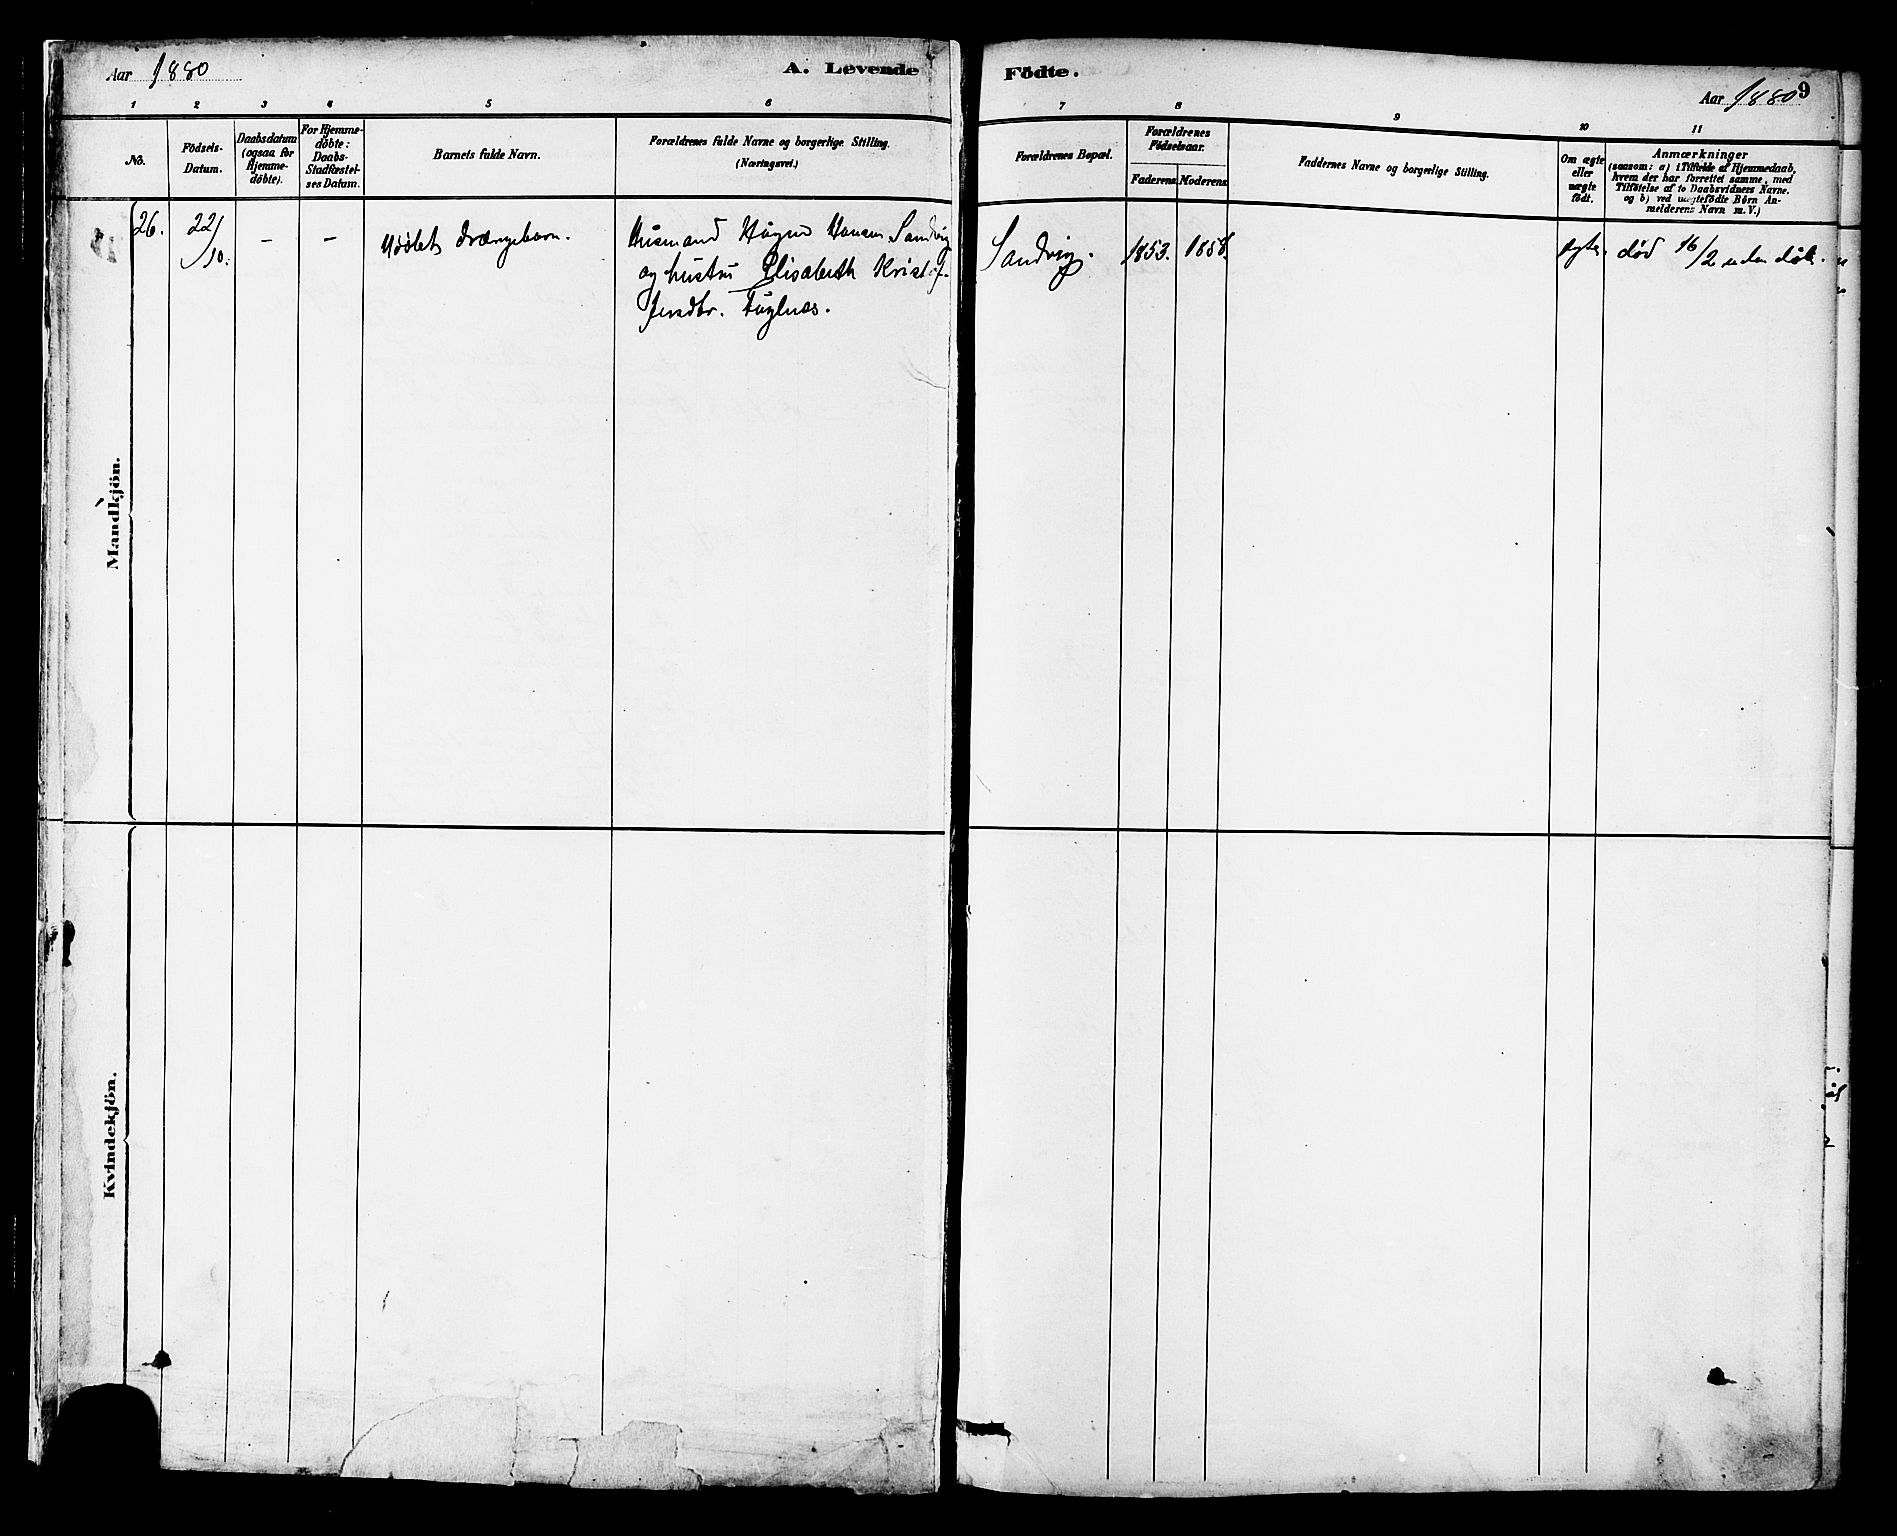 Aar 1880
A. Levende Födte.
Aar 1880
9
1 2 3 4 5 6 7 8 9 10 11
No.
Födsels-
Datum.
Daabsdatum
(ogsaa for
Hjemme-
döbte).
For Hjemme-
döbte:
Daabs-
Stadfæstel-
ses Datum.
Barnets fulde Navn.
Forældrenes fulde Navne og borgerlige Stilling.
(Næringsvei.)
Forældrenes Bopæl.
Forældrenes
Födselsaar.
Faderens. Moderens.
Faddernes Navne og borgerlige Stilling.
Om ægte
eller
uægte
födt.
Anmærkninger
(saasom: a) i Tilfælde af Hjemmedaab,
hvem der har forrettet samme, med
Tilföielse af to Daabsvidners Navne.
og b) ved uægtefödte Börn An-
melderens Navn m. V.)
Mandkjön.
26.
22/10.
–
–
Udøbt drængebarn.
Husmand Hågen Hansen Sandvig
og hustru Elisabeth Kristof-
fersdtr. Fuglnæs.
Sandvig.
1853.
1858
ægte.
død 16/2 uden dåb.
Kvindekjön.